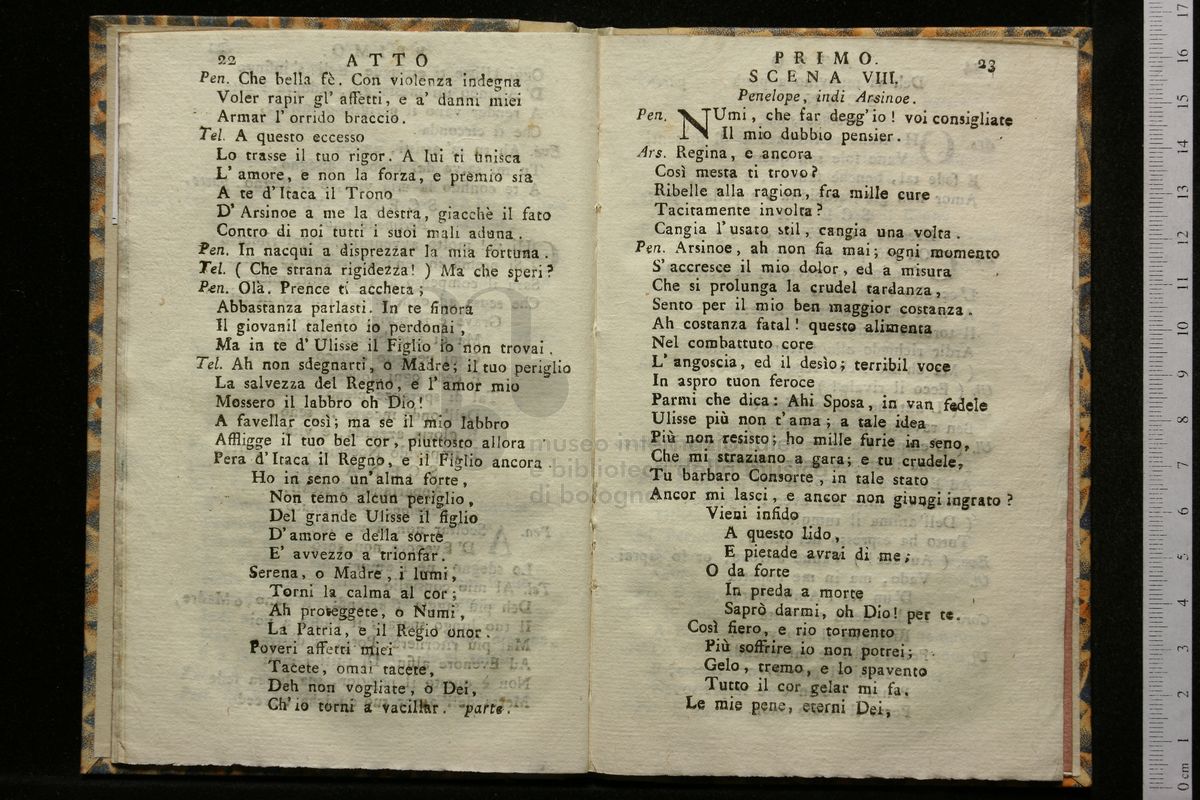 22 ATTO
Pen. Che bella fè. Con violenza indegna
Voler rapir gl' affetti, e a' danni miei
Armar l' orrido braccio.
Tel. A questo eccesso
Lo trasse il tuo rigor. A lui ti unisca
L' amore, e non la forza, e premio sia
A te d' Itaca il Trono
D' Arsinoe a me la destra, giacchè il fato
Contro di noi tutti i suoi mali aduna.
Pen. In nacqui a disprezzar la mia fortuna.
Tel. ( Che strana rigidezza! ) Ma che speri?
Pen. Olà. Prence ti accheta;
Abbastanza parlasti. In te finora
Il giovanil talento io perdonai,
Ma in te d' Ulisse il Figlio io non trovai.
Tel. Ah non sdegnarti, o Madre; il tuo periglio
La salvezza del Regno, e l' amor mio
Mossero il labbro oh Dio!
A favellar così; ma se il mio labbro
Affligge il tuo bel cor, piuttosto allora
Pera d' Itaca il Regno, e il Figlio ancora.
Ho in seno un' alma forte,
Non temo alcun periglio,
Del grande Ulisse il figlio
D' amore e della sorte
E' avvezzo a trionfar.
Serena, o Madre, i lumi,
Torni la calma al cor;
Ah proteggete, o Numi,
La Patria, e il Regio onor.
Poveri affetti miei
Tacete, omai tacete,
Deh non vogliate, o Dei,
Ch' io torni a vacillar. parte.
PRIMO. 23
SCENA VIII.
Penelope, indi Arsinoe.
Pen. NUmi, che far degg' io! voi consigliate
Il mio dubbio pensier.
Ars. Regina, e ancora
Così mesta ti trovo?
Ribelle alla ragion, fra mille cure
Tacitamente involta?
Cangia l' usato stil, cangia una volta.
Pen. Arsinoe, ah non fia mai; ogni momento
S' accresce il mio dolor, ed a misura
Che si prolunga la crudel tardanza,
Sento per il mio ben maggior costanza.
Ah costanza fatal! questo alimenta
Nel combattuto core
L' angoscia, ed il desìo; terribil voce
In aspro tuon feroce
Parmi che dica: Ahi Sposa, in van fedele
Ulisse più non t' ama; a tale idea
Più non resisto; ho mille furie in seno,
Che mi straziano a gara; e tu crudele,
Tu barbaro Consorte, in tale stato
Ancor mi lasci, e ancor non giungi ingrato?
Vieni infido
A questo lido,
E pietade avrai di me;
O da forte
In preda a morte
Saprò darmi, oh Dio! per te.
Così fiero, e rio tormento
Più soffrire io non potrei;
Gelo, tremo, e lo spavento
Tutto il cor gelar mi fa.
Le mie pene, eterni Dei,